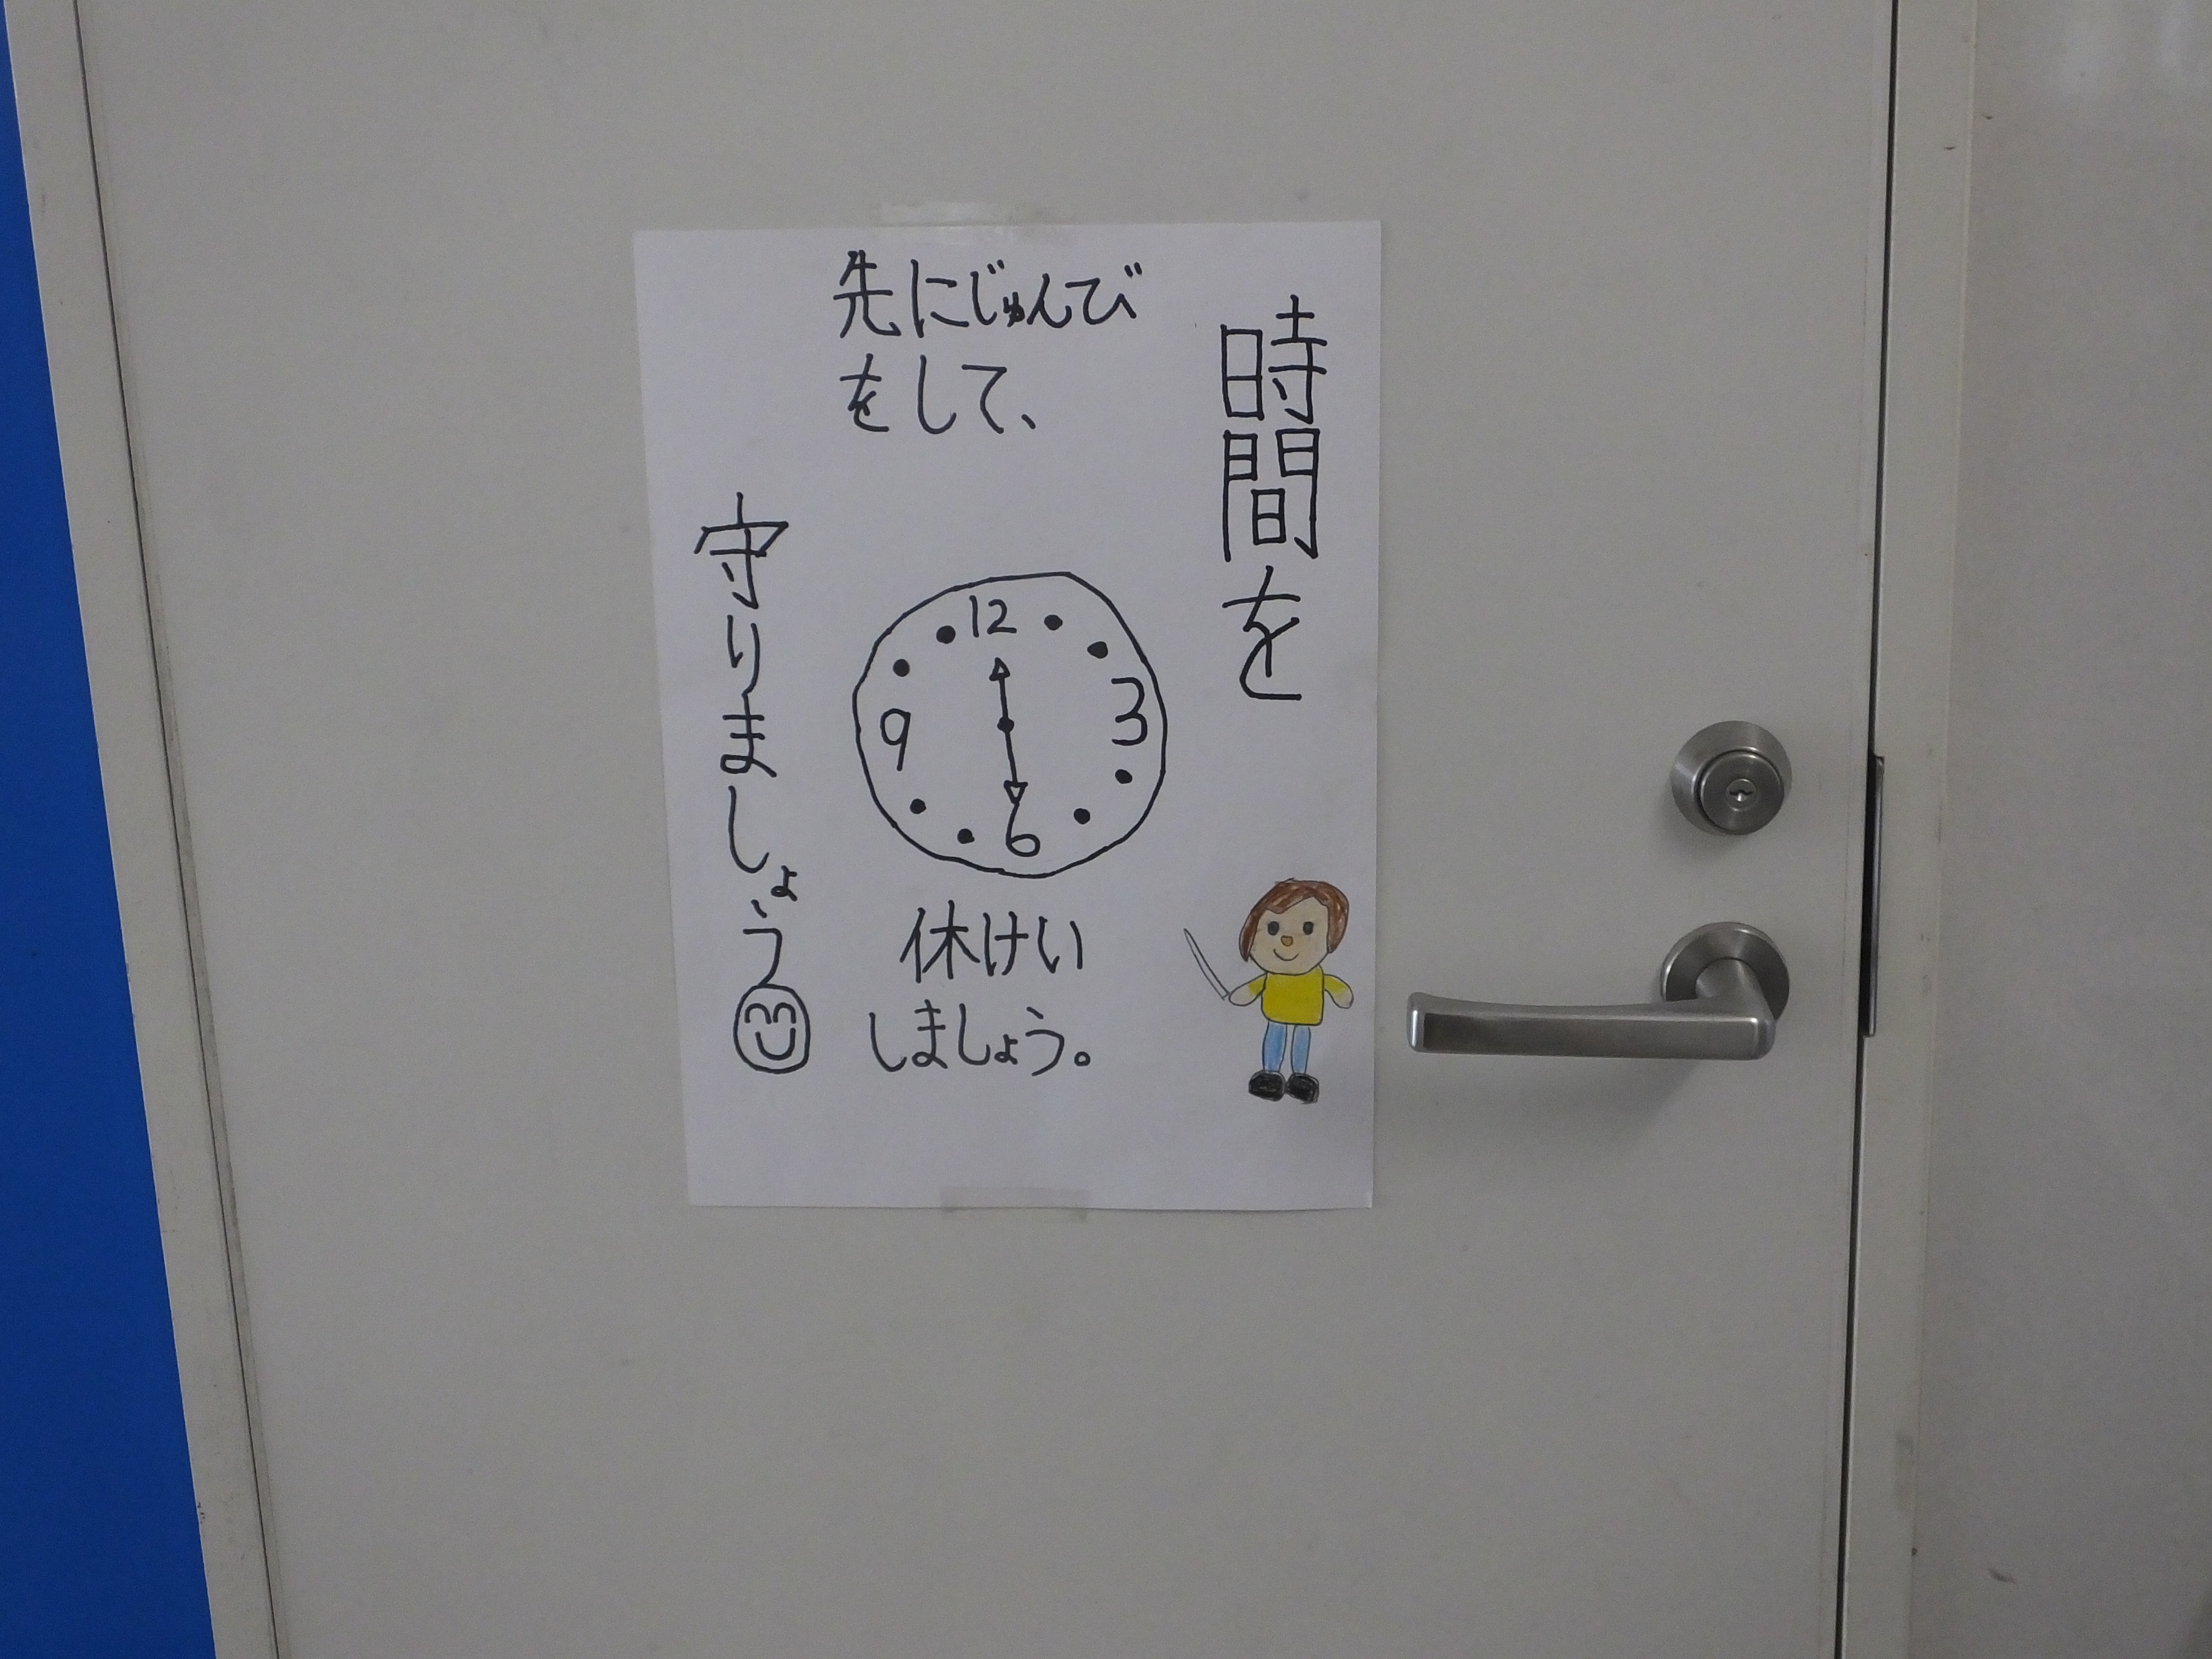 時間を
守りましょう
先にじゅんび
をして、
12
3
6
9
休けい
しましょう。